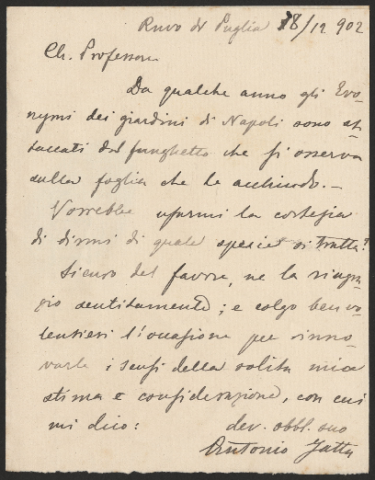 Ruvo di Puglia 18/12 902
Ch. Professore
Da qualche anno gli Evo-
nymi dei giardini di Napoli sono at-
taccati dal funghetto che si osserva
sulla foglia che le acchiudo. -
Vorrebbe usarmi la cortesia
di dirmi di quale specie si tratta?
Sicuro del favore, ne la ringra-
zio sentitamente; e colgo ben vo-
lentieri l'occasione per rinno-
varle i sensi della solita mia
stima e considerazione, con cui
mi dico: dev. obbl. suo
Antonio Jatta